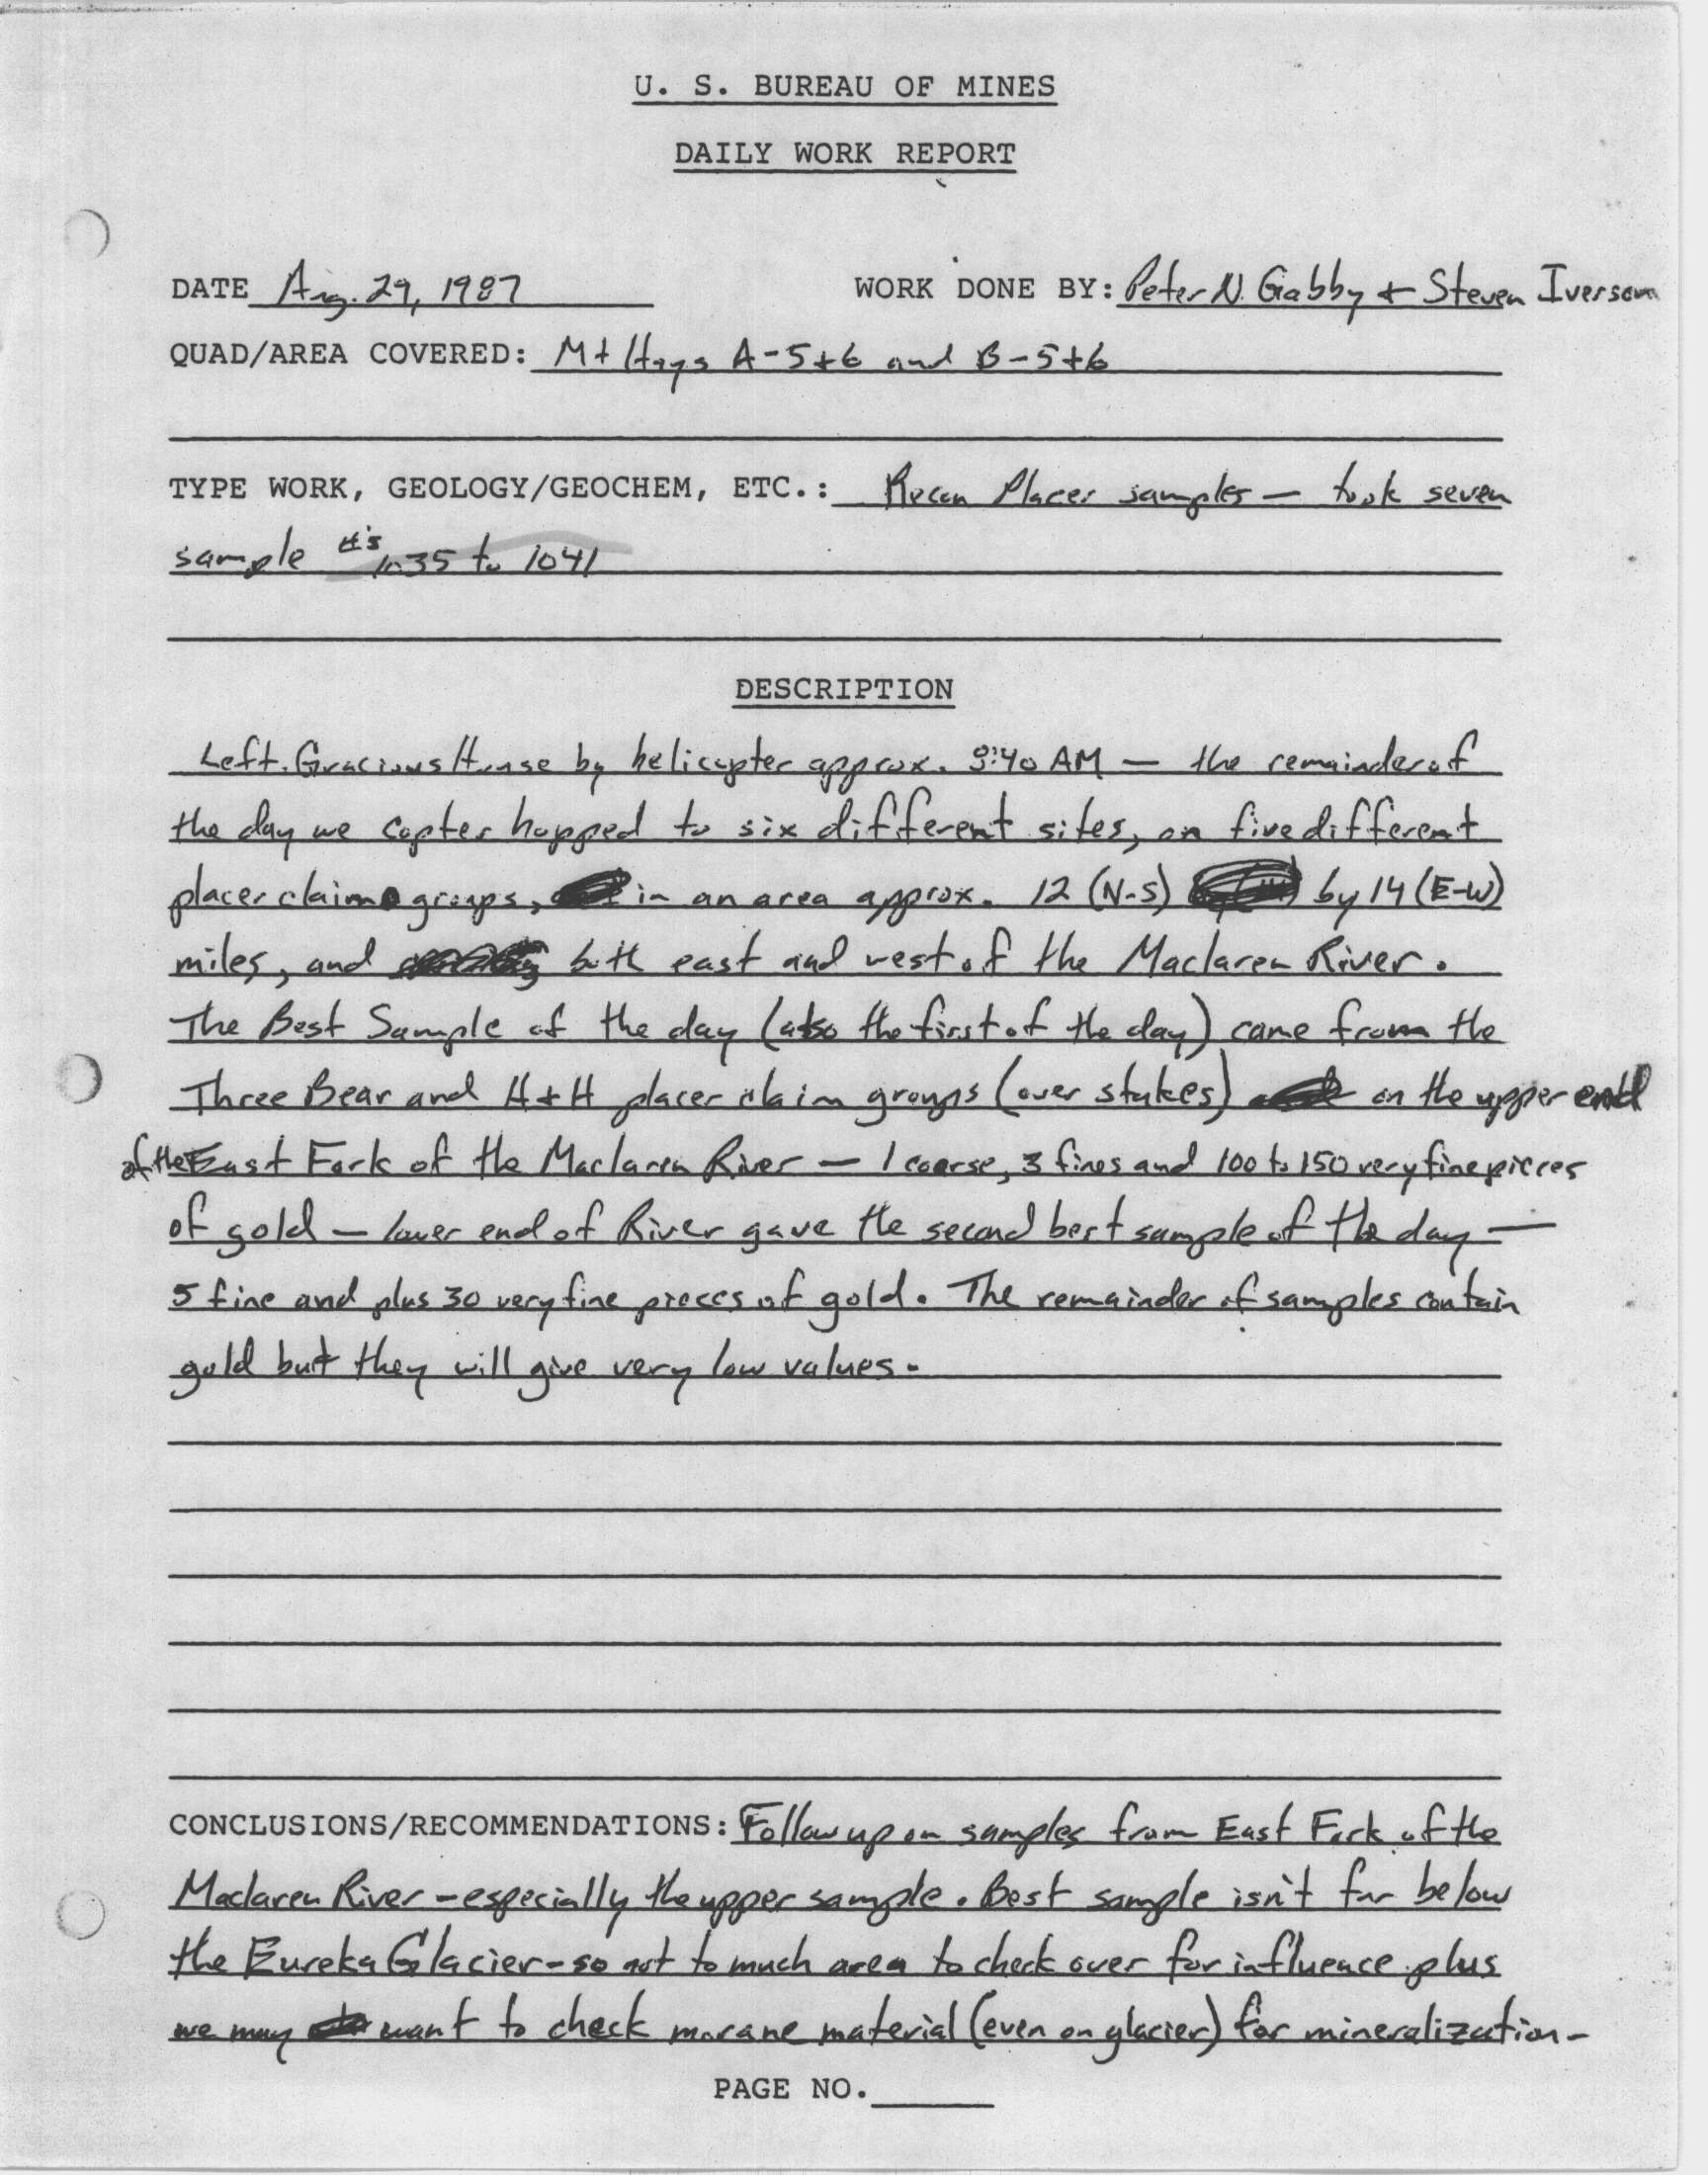 U. S. BUREAU OF MINES
DAILY WORK REPORT
DATE Aug. 29, 1987 WORK DONE BY: Peter N. Gabby + Steven Iverson
QUAD/AREA COVERED: Mt Hays A-5+6 and B-5+6
TYPE WORK, GEOLOGY/GEOCHEM, ETC.: Recon Placer samples — took seven
sample #'s 1035 to 1041
DESCRIPTION
Left Gracious House by helicopter approx. :40 AM — the remainder of
the day we copter hopped to six different sites, on five different
placer claim groups, in an area approx. 12 (N-S) by 14 (E-W)
miles, and both east and west of the Maclaren River.
The Best Sample of the day (also the first of the day) came from the
Three Bear and H+H placer claim groups (over stakes) on the upper end
of the East Fork of the Maclaren River — 1 coarse, 3 fines and 100 to 150 very fine pieces
of gold — lower end of River gave the second best sample of the day —
5 fine and plus 30 very fine pieces of gold. The remainder of samples contain
gold but they will give very low values.
CONCLUSIONS/RECOMMENDATIONS: Follow up on samples from East Fork of the
Maclaren River - especially the upper sample. Best sample isn't far below
the Eureka Glacier - so not to much area to check over for influence plus
we may want to check morane material (even on glacier) for mineralization -
PAGE NO.